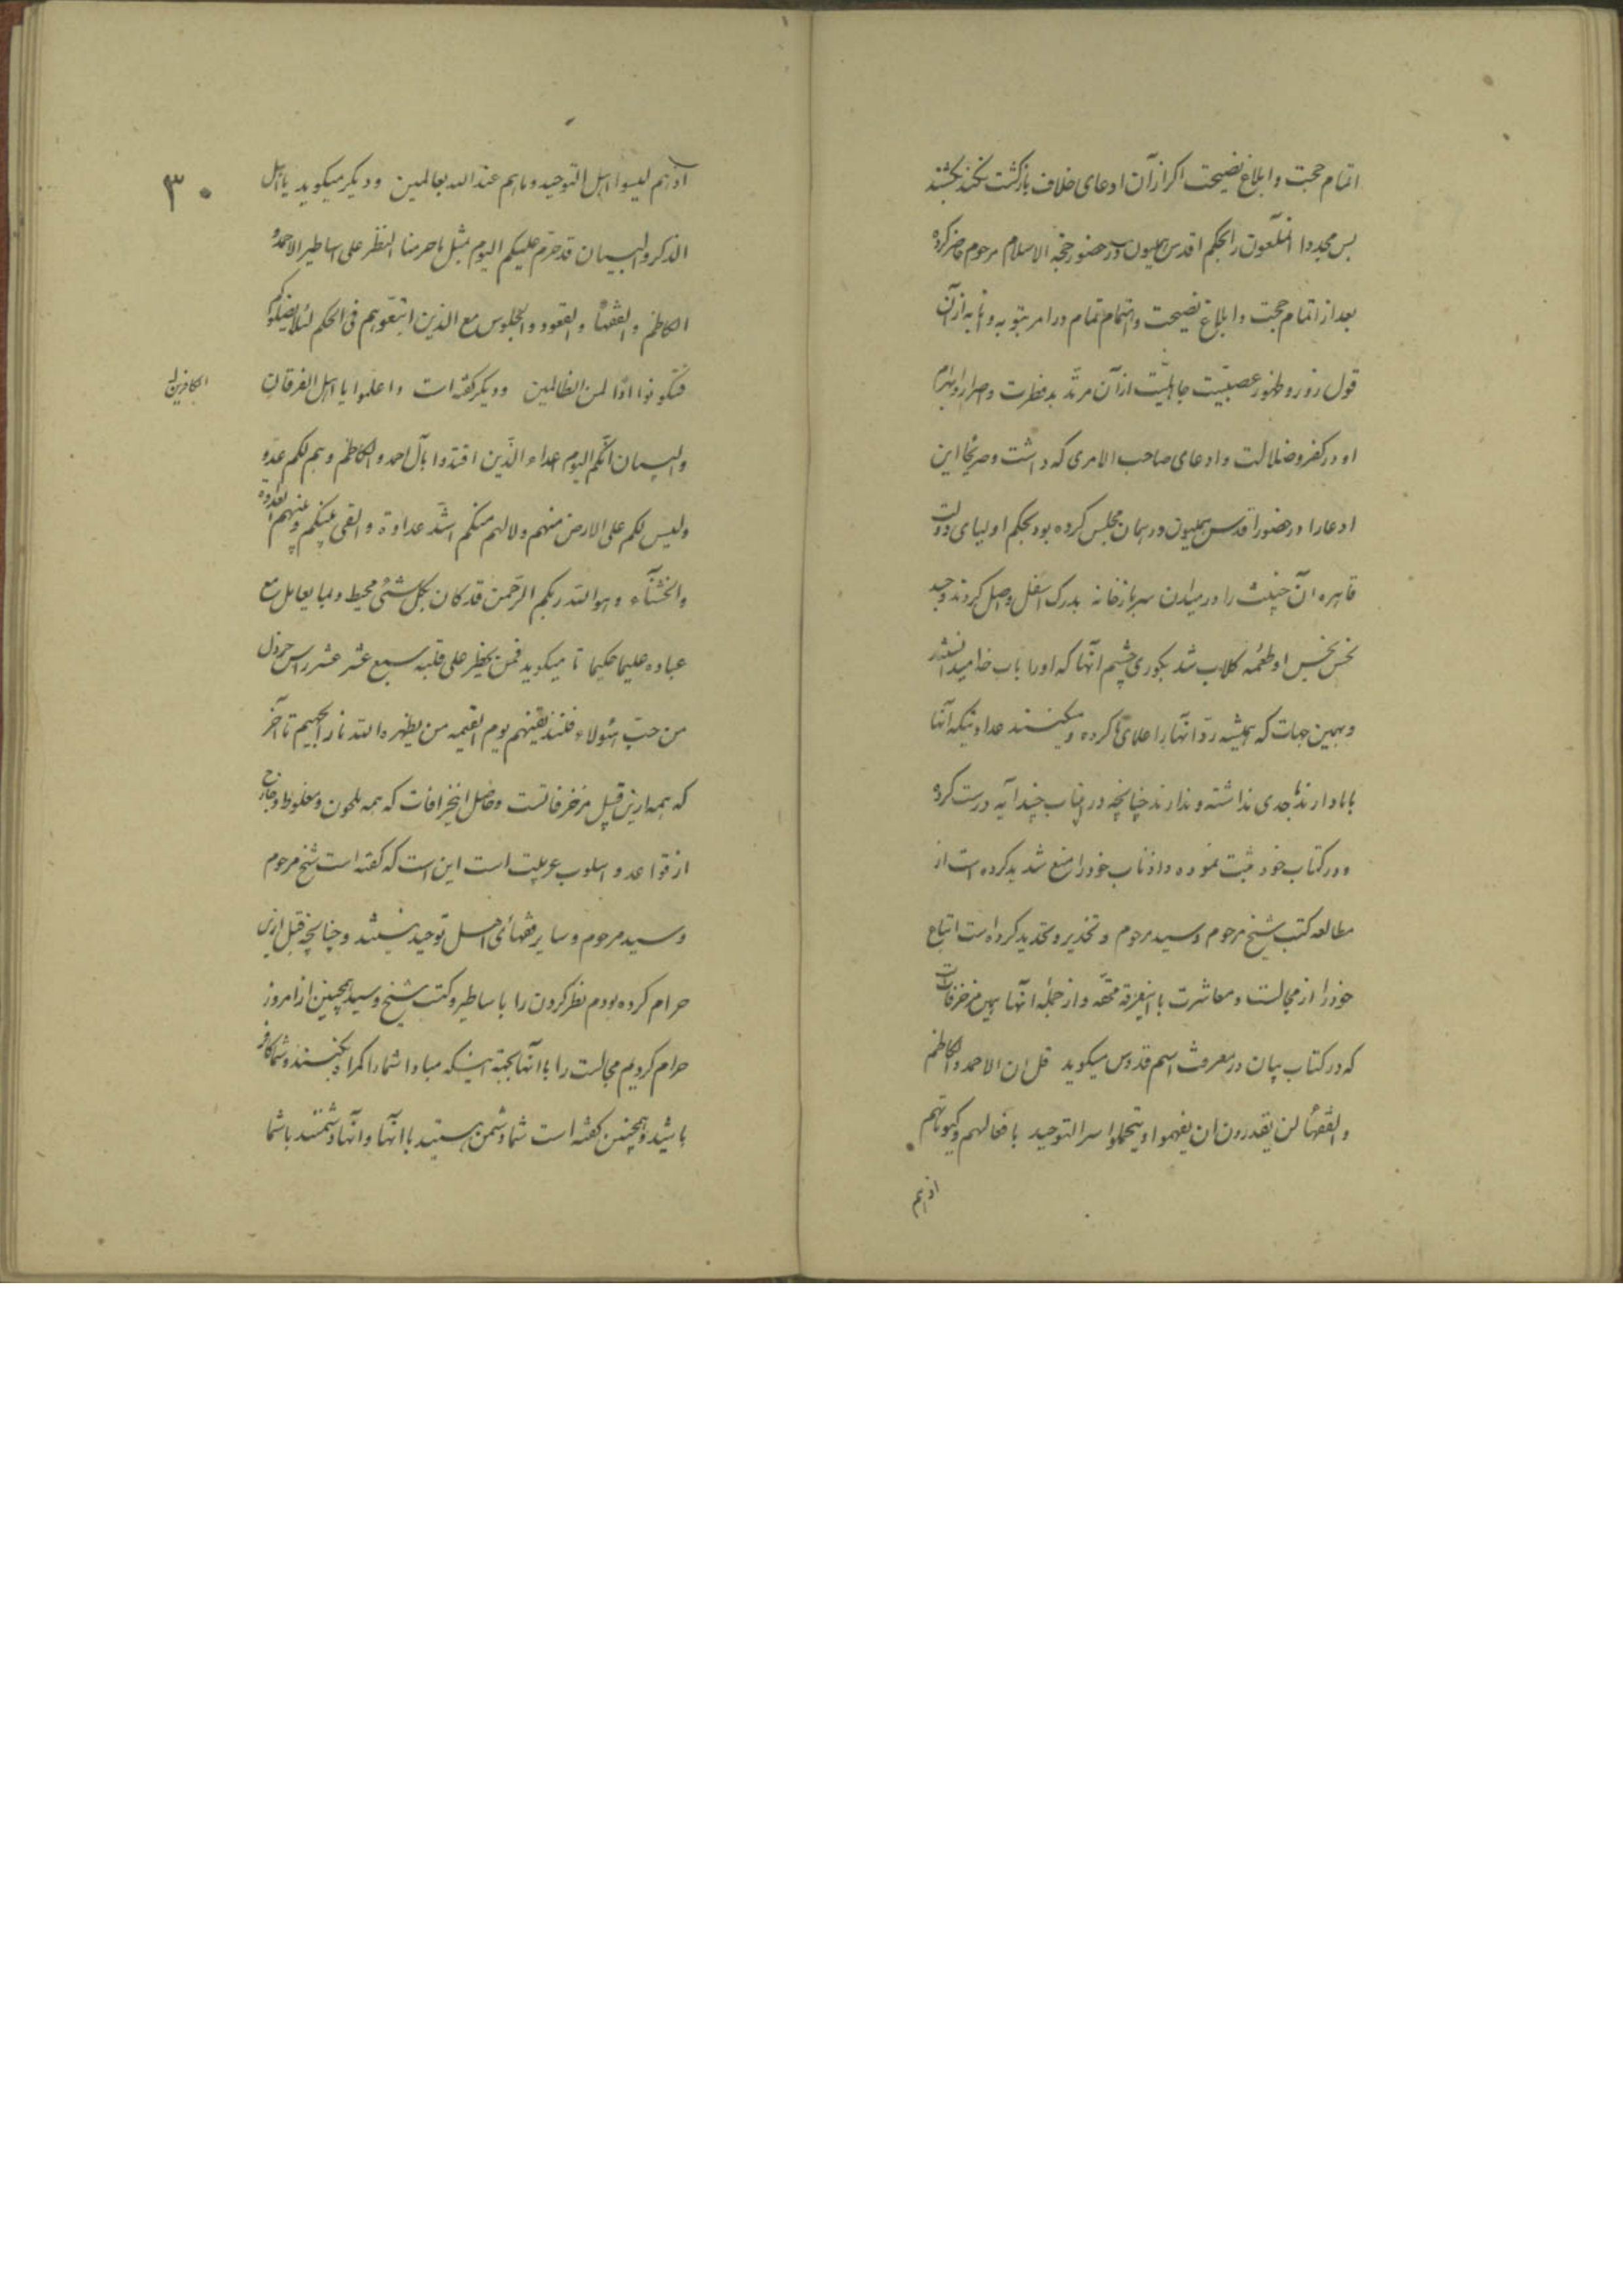 اتمام حجت و ابلاغ نصیحت اکر از آن ادعای خلاف بازکشت نکند بکشند
پس مجددا انملعون را بحکم اقدس همیون در حضور حجة الاسلام مرحوم حاضر کرده
بعد از اتمام حجت و ابلاغ نصیحت و اهتمام تمام در امر بتوبه و انابه از آن
قول زور و ظهور عصبیّت جاهلیّت از آن مرتد بد فطرت و اصرار و ابرام
او در کفر و ضلالت و ادعای صاحب الامری که داشت و صریحا این
ادعا را در حضور اقدس همیون در همان مجلس کرده بود بحکم اولیای دولت
قاهره آن خبیث را در میدان سربازخانه بدرک اسفل واصل کردند و جسد
نحس نجس او طعمه کلاب شد بکوری چشم آنها که او را باب خدا میدانستند
و بهمین جهات که همیشه ردّ آنها را اعلای ما کرده و میکنند عداوتیکه آنها
با ما دارند با احدی نداشته و ندارند چنانچه در اینباب چند آیه درست کرده
و در کتاب خود ثبت نموده و اذناب خود را منع شدید کرده است از
مطالعه کتب شیخ مرحوم و سید مرحوم و تحذیر و تحدید کرده است اتباع
خود را از مجالست و معاشرت با اینفرقه محقّه و از جمله آنها همین مزخرفات است
که در کتاب بیان در معرفت اسم قدوس میکوید قل ان الاحمد و الکاظم
و الفقهاء لن یقدرون ان یفهموا او یتحملوا سر التوحید بافعالهم و کینوناتهم
اذ هم
۳۰
اذ هم لیسوا اهل التوحید و ما هم عند الله بعالمین و دیکر میکوید یا اهل
الذکر و البیان قد حرّم علیکم الیوم بمثل ما حرمنا النظر علی اساطیر الاحمد و
الکاظم و الفقهاء و القعود و الجلوس مع الذین اتبعوهم فی الحکم لئلا یضلوکم
فتکونوا اذّا لمن الظالمین و دیکر کفته است و اعلموا یا اهل الفرقان
الکافرین
و البیان انکم الیوم اعداء الذین اقتدوا بآل احمد و الکاظم و هم لکم عدو
و لیس لکم علی الارض منهم و لا لهم منکم اشدّ عداوة و القی بینکم و بینهم العداوة
و البخشاء و هو الله ربکم الرّحمن قد کان بکل شئ محیط و لما یعامل مع
عباده علیما حکیما تا میکوید فمن یخطر علی قلبه سبع عشر عشر راس خردل
من حبّ هئولاء فلنذیقنهم یوم القیمه من یظهره الله نار الجحیم تا آخر
که همه از این قبیل مزخرفاتست و حاصل این خرافات که همه ملحون و مغلوط و خارج
از قواعد و اسلوب عربیت است این است که کفته است شیخ مرحوم
و سید مرحوم و سایر فقهای اهل توحید نیستند و چنانچه قبل ازین
حرام کرده بودم نظر کردن را با ساطیر و کتب شیخ و سید همچنین از امروز
حرام کردیم مجالست را با آنها بجهة اینکه مبادا شما را کمراه بکنند و شما کافر
باشید و همچنین کفته است شما دشمن هستید با آنها و آنها دشمنند با شما